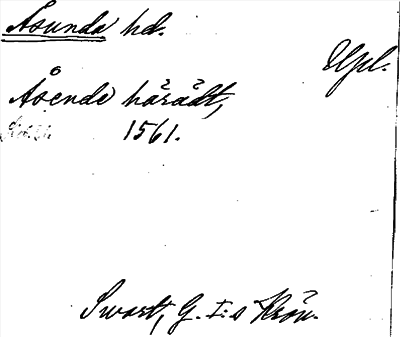 Åsunda hd.
Upl.
Åsende håradt,
1561.
Swart, G. I:s Krön.